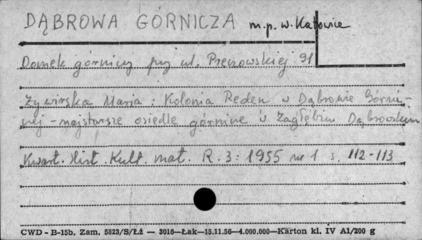 DĄBROWA GÓRNICZA m.p.w. Katowice
Domek górniczy przy ul. Perenowskiej 91
Żywirska Maria: Kolonia Reden w Dąbrowie Górni-
nej - najstarsze osiedle górnicze w Zagłębiu Dąbrowskim
Kwart. Hist. Kult. mat. R. 3: 1955 nr 1 s. 112-113
CWD - B-15b. Zam. 5823/S/Łź — 3016—Łak—15.11.56—4.000.000—Karton kl. IV A1/200 g